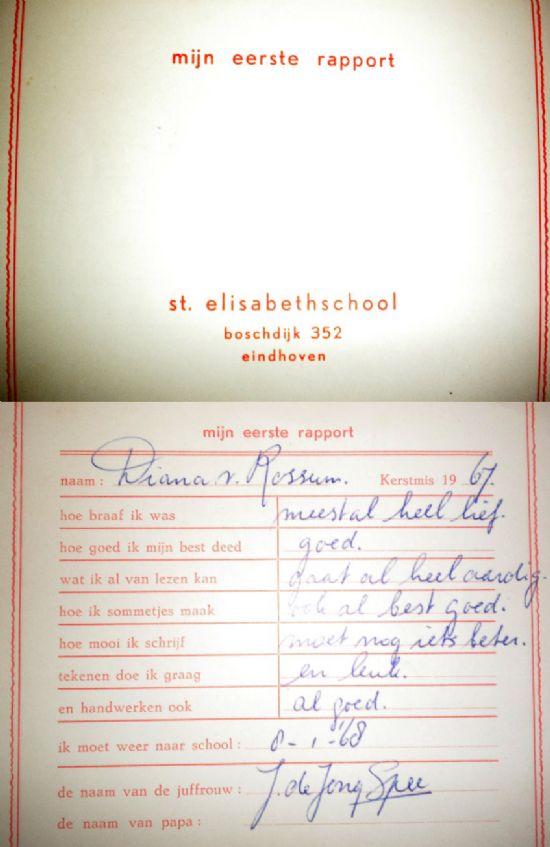 mijn eerste rapport
st. elisabethschool
boschdijk 352
eindhoven
mijn eerste rapport
naam: Diana v. Rossum. Kerstmis 1967.
hoe braaf ik was meestal heel lief.
hoe goed ik mijn best deed goed.
wat ik al van lezen kan gaat al heel aardig.
hoe ik sommetjes maak ook al best goed.
hoe mooi ik schrijf moet nog iets beter.
tekenen doe ik graag en leuk.
en handwerken ook al goed.
ik moet weer naar school: 8-1-'68
de naam van de juffrouw: J. de Jong Spee
de naam van papa: